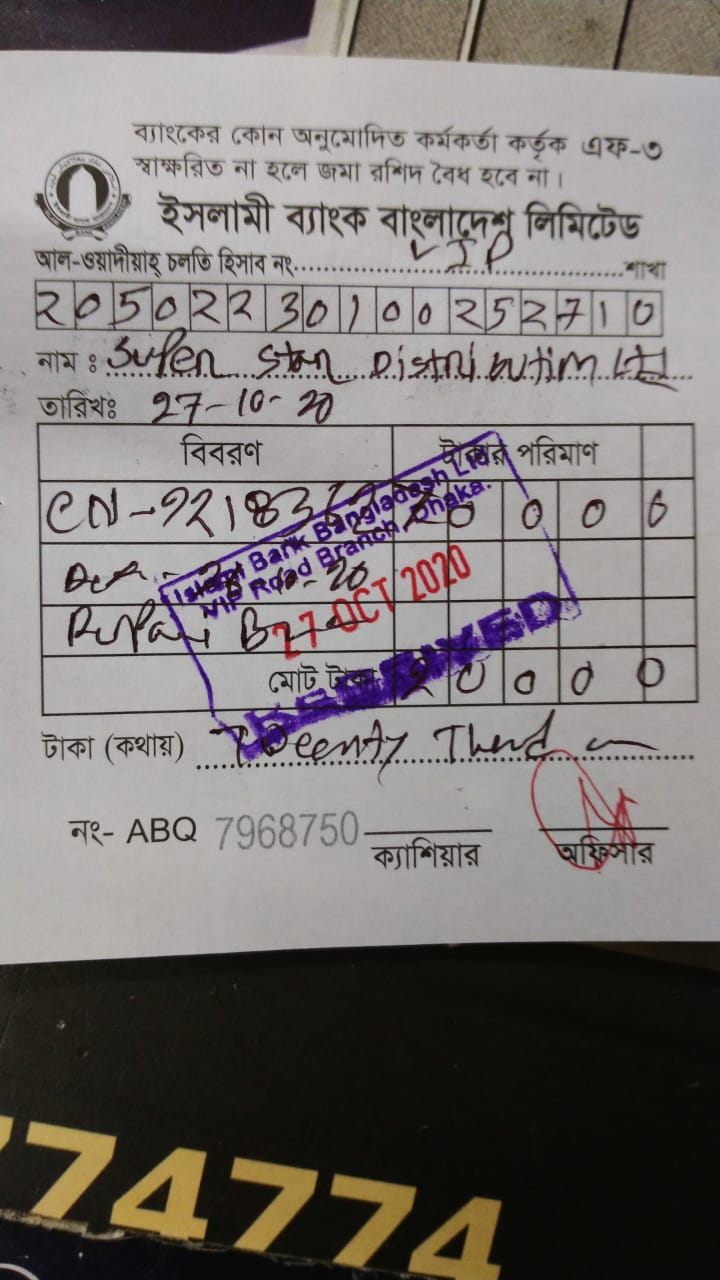 ব্যাংকের কোন অনুমোদিত কর্মকর্তা কর্তৃক এফ-৩
স্বাক্ষরিত না হলে জমা রশিদ বৈধ হবে না।
ইসলামী ব্যাংক বাংলাদেশ লিমিটেড
আল-ওয়াদীয়াহ্ চলতি হিসাব নং.....VIP.....শাখা
20502230100252710
নাম : Super Star Distribution Ltd
তারিখঃ 27-10-20
বিবরণ টাকার পরিমাণ
CN-92183 20000
-10-20
Rupali
মোট টাকা 20000
Islami Bank Bangladesh Ltd.
VIP Road Branch, Dhaka.
27 OCT 2020
RECEIVED
টাকা (কথায়) Tweenty
নং- ABQ 7968750
ক্যাশিয়ার অফিসার
774774